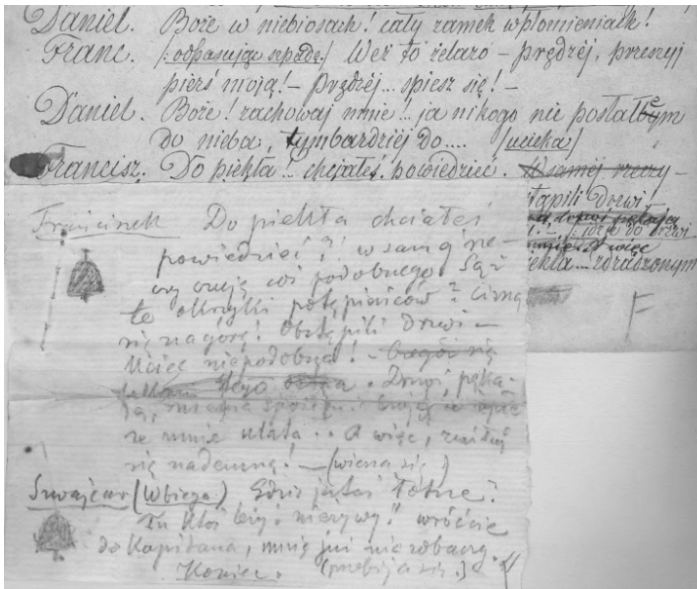 Daniel. Boże w niebiosach! cały zamek w płomieniach!
Franc. /:odpasując szpadę:/ Weź to żelazo – prędzéj, przeszyj
pierś moją! – prędzéj... spiesz się! –
Daniel. Boże! zachowaj mnie! ja nikogo nie posłałbym
do nieba, tymbardziéj do.... /ucieka/
Francisz. Do piekła!.. chciałeś powiedzieć. W saméj rzeczy –
tąpili Drzwi
idzie do drzwi
A więc
piekła... zdruzgonym
F
Franciszek Do piekła chciałeś
powiedzieć?! w samej rze-
czy czuję coś podobnego. Są ż
te okrzyki potępieńców? Cisną
się na górę! Obstąpili Drzwi –
Uciec niepodobna!
Drzwi pęka-
ze mnie ulata.. A więc, zmiłuj
się nademną! – (wiesza się)
Szwajcar (Wbiega) Gdzie jesteś łotrze?
Tu ktoś leży nieżywy! wróćcie
do Kapitana, mnię już nie zobaczy.
Koniec. (przebija się.)